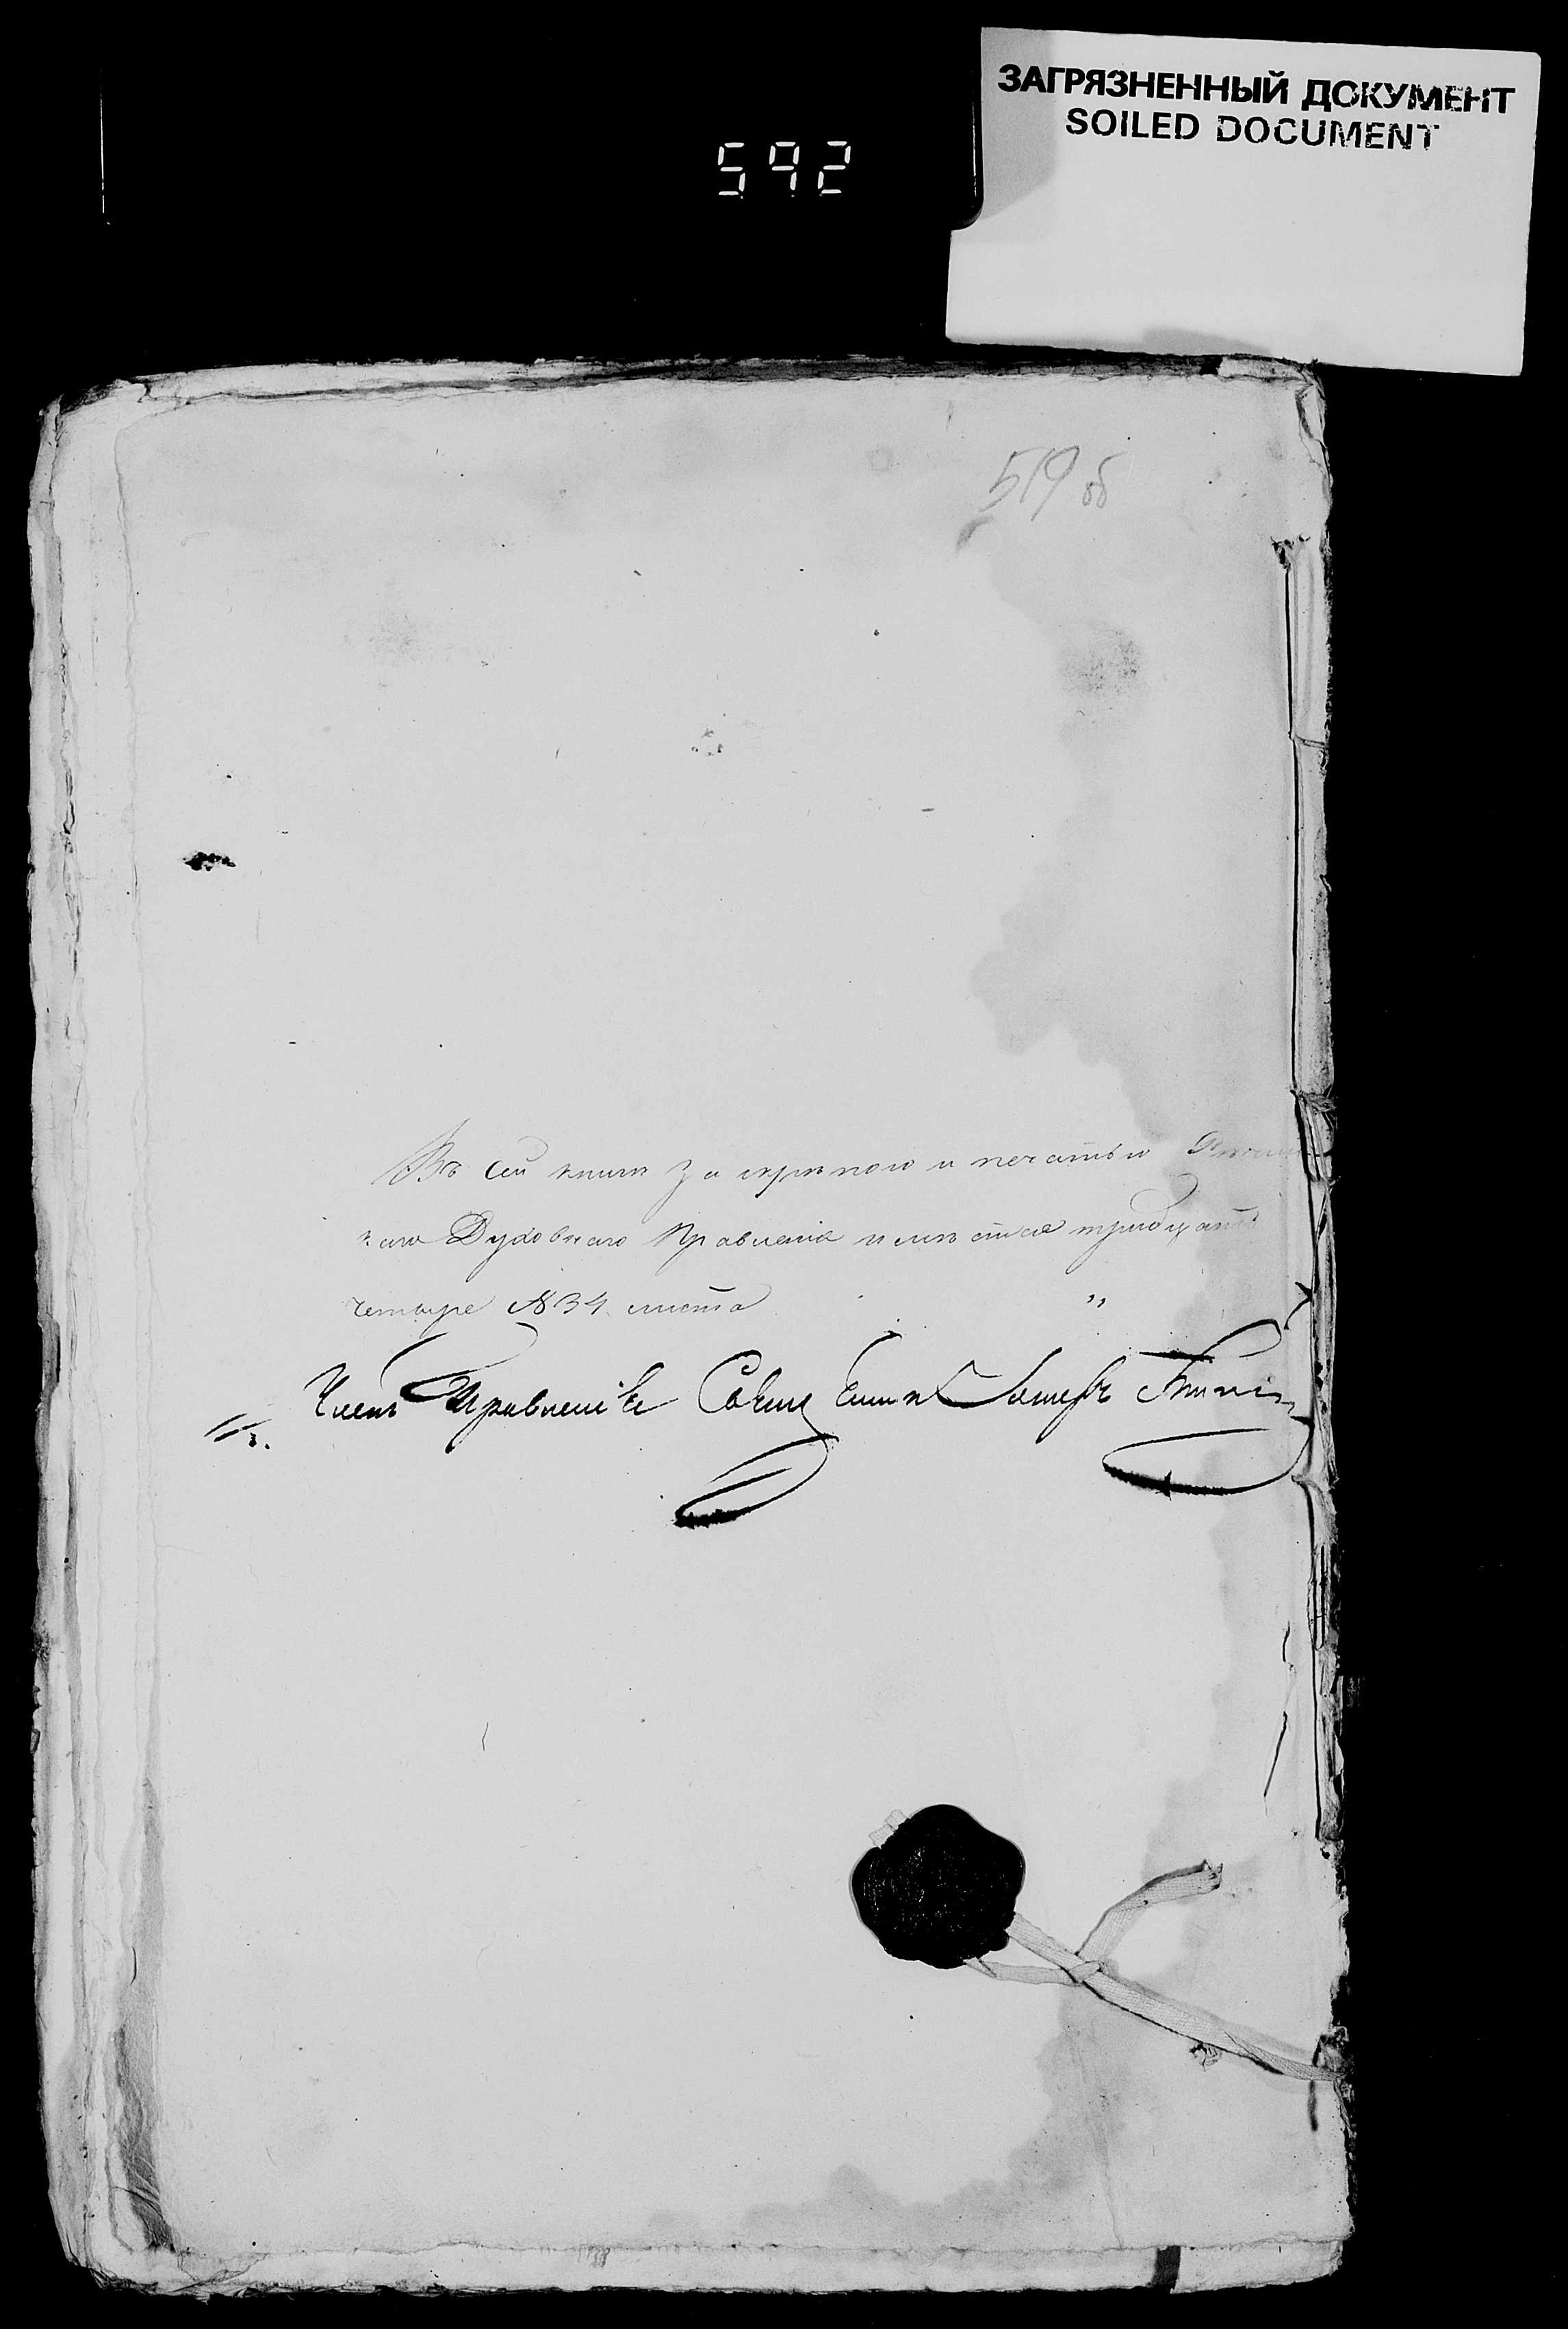 ЗАГРЯЗНЕННЫЙ ДОКУМЕНТ
SOILED DOCUMENT
592
519 об
Въ сей книге за скрепою и печатью
каго Духовнаго Правления имеется тридцать
четыре № 34 листа "
Членъ Правления Священник